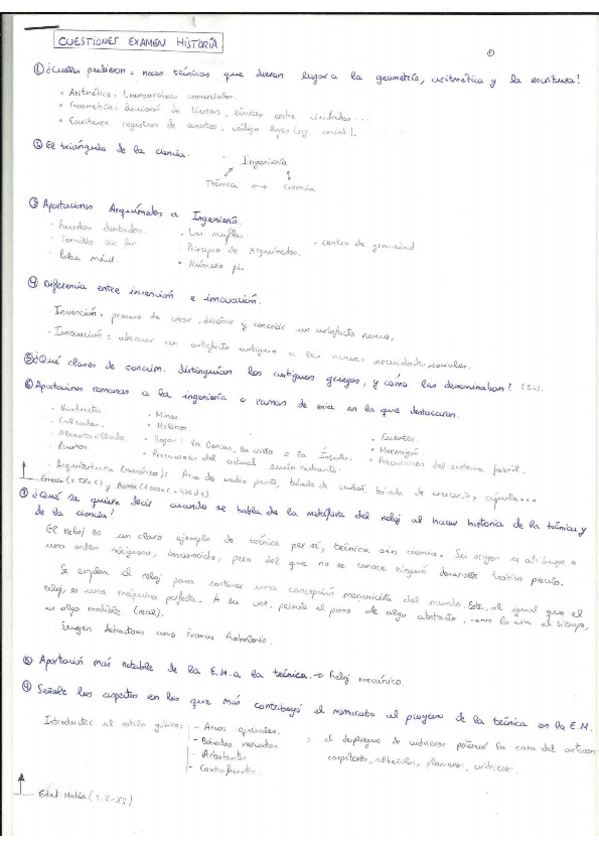 CUESTIONES EXAMEN HISTORIA
①
① ¿Cuáles pudieron . neces. técnicas que dieran lugar a la geometría, aritmética y la escritura?
• Aritmética: transacciones comerciales.
• Geometría: división de tierras, entre ciudades...
• Escritura: registros de eventos, código leyes (org. social).
② El triángulo de la ciencia.
Ingeniería
Técnica ↔ Ciencia
③ Aportaciones Arquímedes a Ingeniería.
• Ruedas dentadas. • Las • centro de gravedad
• Tornillo sin fin • Principio de Arquímedes.
• Polea móvil • Número pi
④ Diferencia entre invención e innovación.
• Invención: proceso de crear, diseñar y concebir un artefacto nuevo.
• Innovación: adecuar un artefacto antiguo a las nuevas necesidades sociales.
⑤ ¿Qué clases de conocim. distinguían los antiguos griegos, y cómo las denominaban?
⑥ Aportaciones romanas a la ingeniería o ramas de esta en la que destacaron.
• Viaductos • Minas • Puentes
• Calzadas • Molinos • Hormigón
• Alcantarillado • Hogar: la Domus, la villa o la Ínsula. • Precursores del sistema fabril.
• Puertos • Precursor del actual suelo radiante.
• Arquitectura: Arco de medio punto, bóveda de cañón, bóveda de crucería, cúpula...
Grecia y Roma
⑦ ¿Qué se quiere decir cuando se habla de la metáfora del reloj al hacer historia de la técnica y
de la ciencia?
El reloj es un claro ejemplo de técnica per sé, técnica sin ciencia. Su origen se atribuye a
una orden religiosa, desconocido, pero del que no se conoce ningún desarrollo teórico previo.
Se emplea el reloj para una concepción mecanicista del mundo. Este, al igual que el
reloj, es una máquina perfecta. A su vez, permite el paso de algo abstracto, como lo era el tiempo,
a algo medible (real).
Surgen detractores como Francis
⑧ Aportación más notable de la E.M. a la técnica. → Reloj mecánico.
⑨ Señale los aspectos en los que más contribuyó el monacato al progreso de la técnica en la E.M.
Introductor al estilo gótico: - Arcos ojivales. ; el despliegue de vidrieras potenció la casa del artesano
- Bóvedas nervadas. carpintero, albañiles, vidrieros.
- Arbotantes
- Contrafuertes.
Edad Media (s. V-XV)